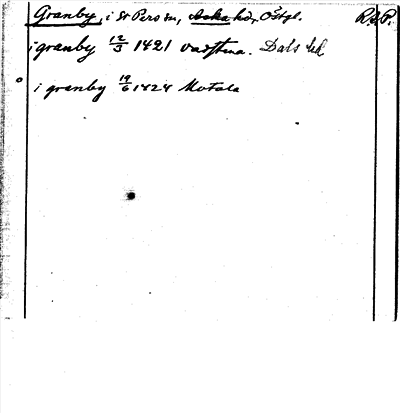 Granby, i St Pers sn, Aska hd, Östgl. R.A.P.
i granby 12/3 1421 Vadstena. Dals hd
i granby 19/6 1424 Motala